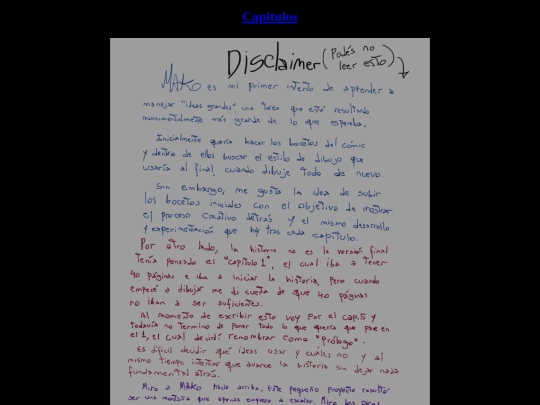 Capitulos
Disclaimer (Podés no
leer esto)
MAKO es mi primer intento de aprender a
manejar "ideas grandes" una tarea que está resultando
monumentalmente más grande de lo que esperaba.
Inicialmente quería hacer los bocetos del cómic
y dentro de ellos buscar el estilo de dibujo que
usaría al final, cuando dibuje todo de nuevo.
Sin embargo, me gusta la idea de subir
los bocetos iniciales con el objetivo de mostrar
el proceso creativo detrás y el mismo desarrollo
y experimentación que hay tras cada capítulo.
Por otro lado, la historia no es la versión final
Tenía pensado el "capítulo 1", el cual iba a tener
40 páginas e iba a iniciar la historia, pero cuando
empecé a dibujar me di cuenta de que 40 páginas
no iban a ser suficientes.
Al momento de escribir esto voy por el cap.5 y
todavía no termino de poner todo lo que quería que pase en
el 1, el cual decidí renombrar como "prólogo".
Es difícil decidir qué ideas usar y cuáles no y al
mismo tiempo intentar que avance la historia sin dejar nada
fundamental atrás.
Miro a MAKO hacia arriba. Este pequeño proyecto resultó
ser una montaña que apenas empiezo a escalar. Miro los